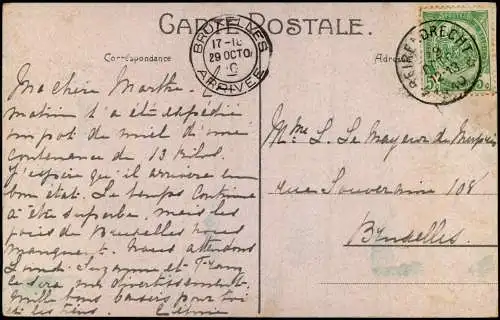 CARTE POSTALE.
Correspondance
BRUXELLES
17-18
29 OCTO
ARRIVÉE
Ma chère Marthe.
matin t'a été expédié
un pot de miel d'une
contenance de 13 kilos.
J'espère qu'il arrivera en
bon état. Le temps continue
à être superbe, mais les
de Bruxelles nous
manquent. Nous attendons
Lundi Suzanne et
sera un divertissement.
Mille bons baisers pour toi
et les tiens.
12-13
Mme L. Le Mayeur de
rue Souveraine 108
Bruxelles.